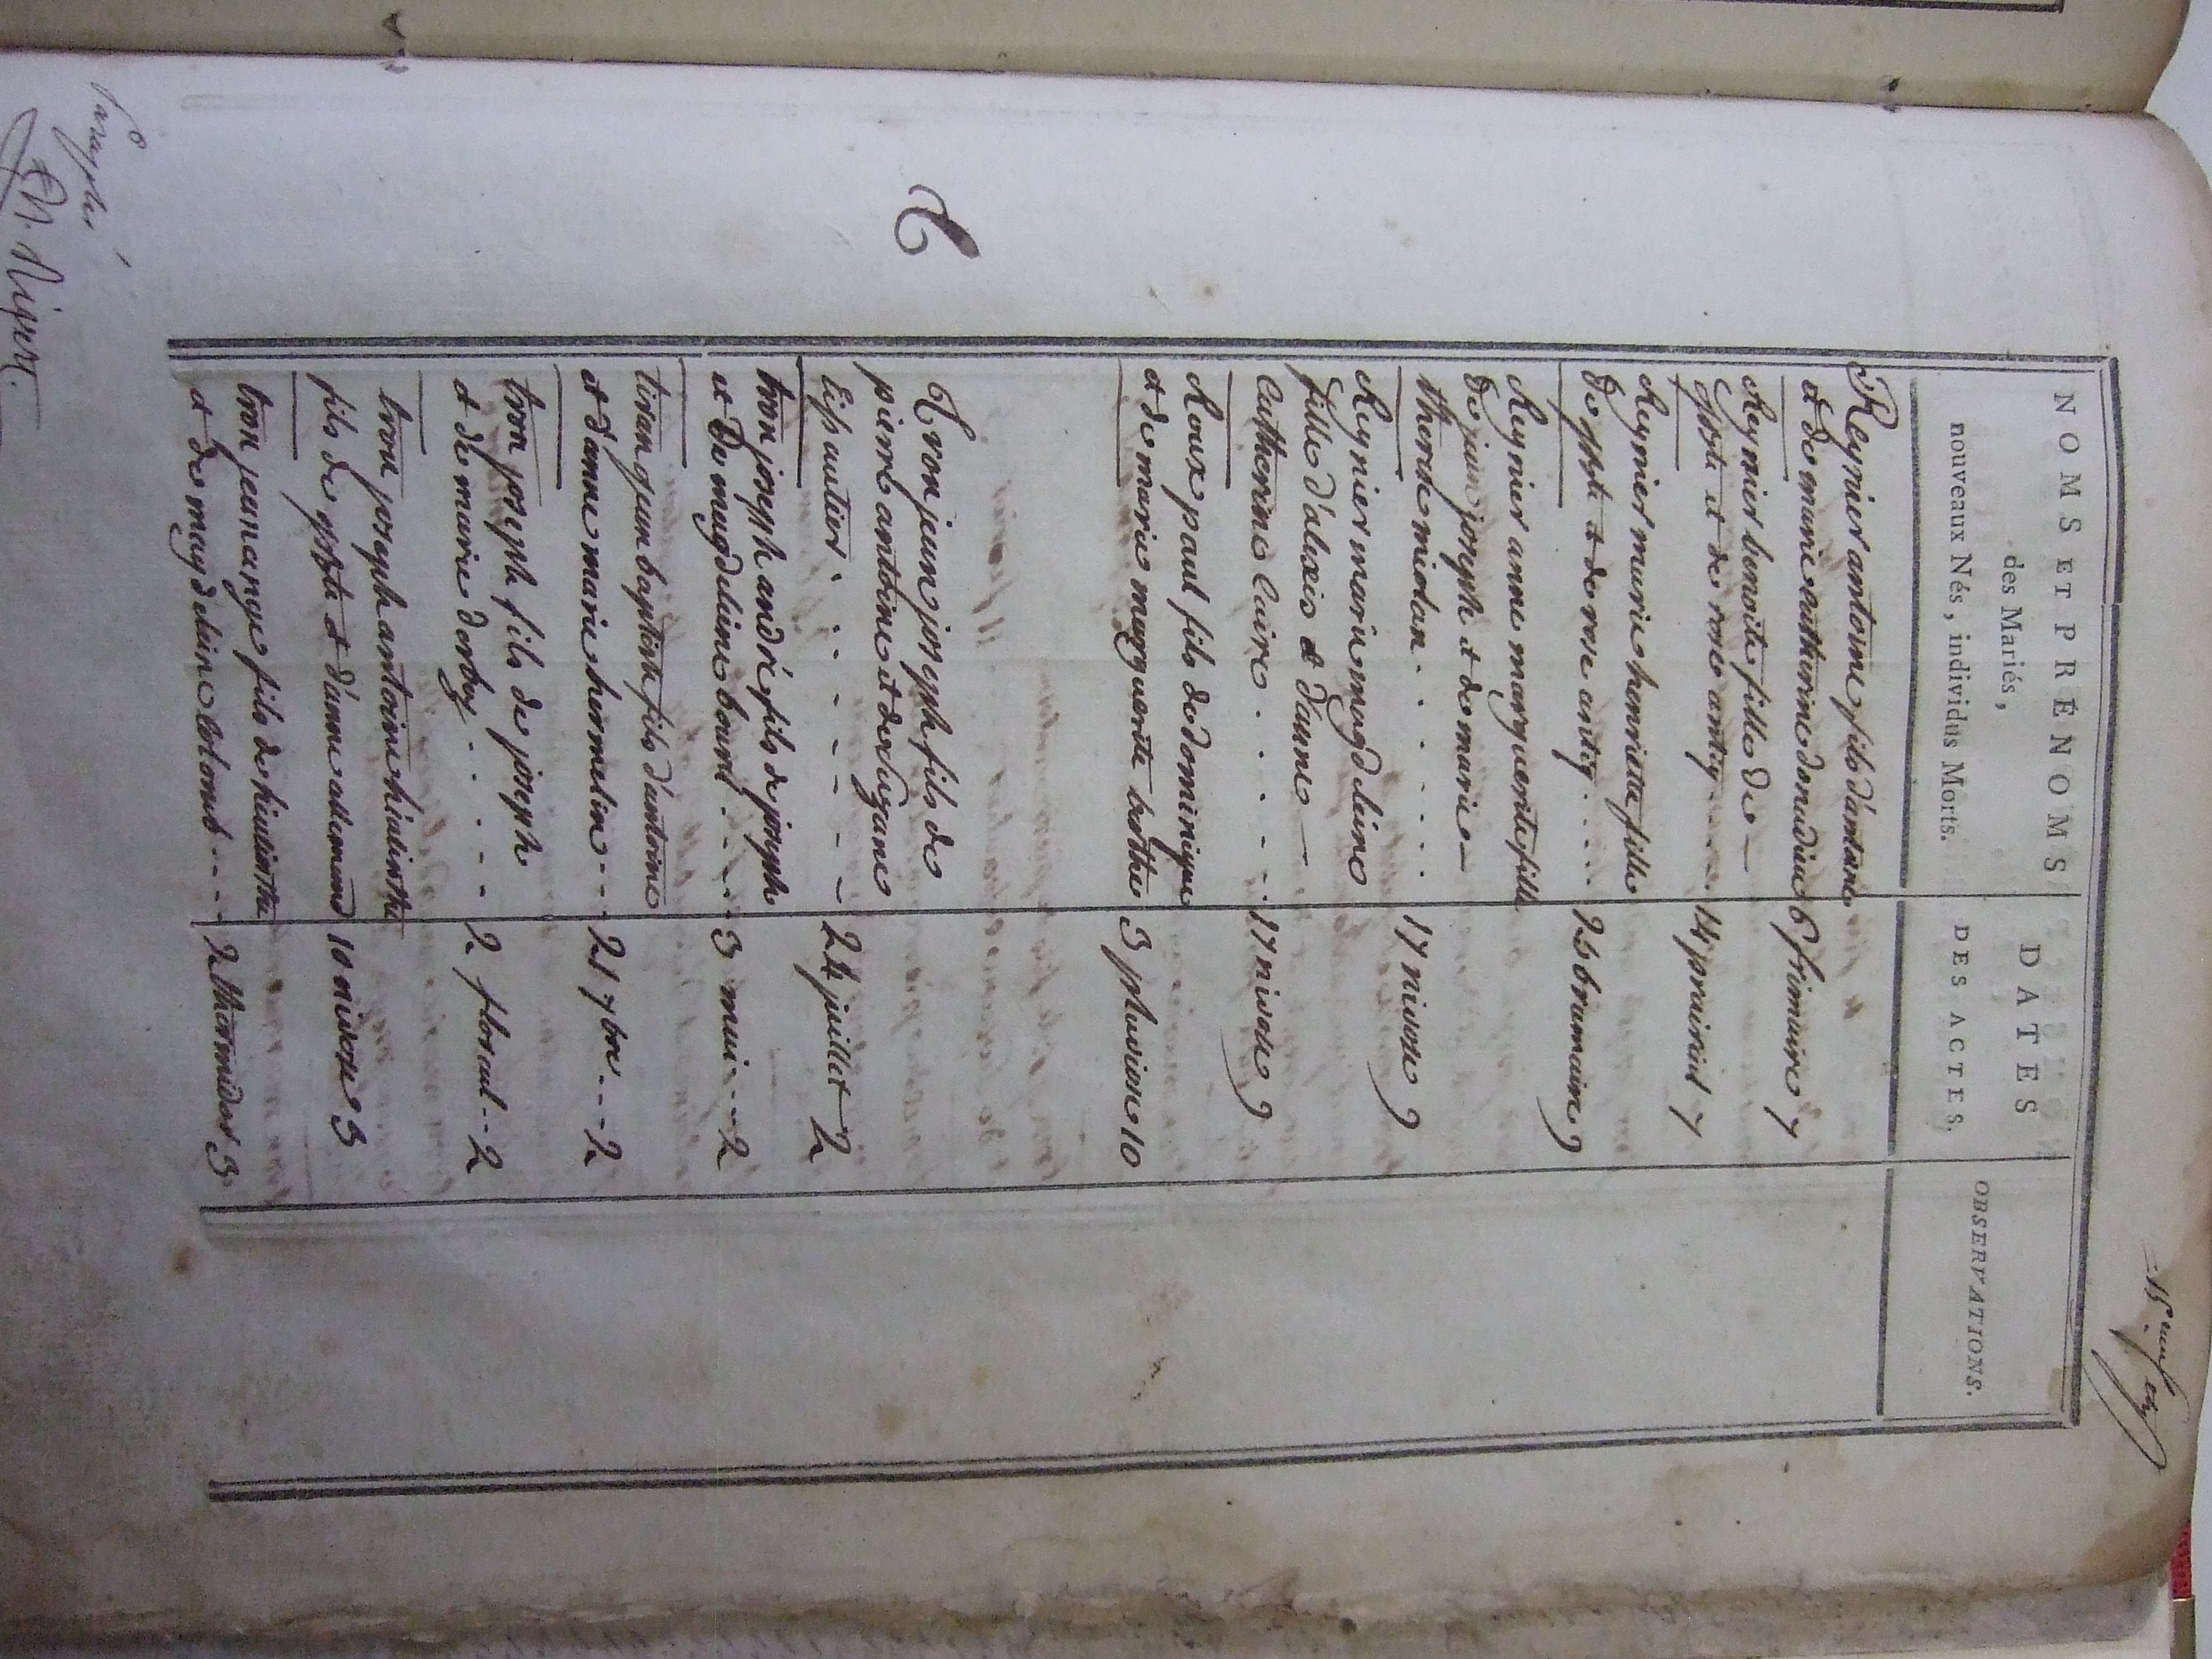 NOMS ET PRÉNOMS
des Mariés,
nouveaux Nés, individus Morts.
DATES
DES ACTES.
OBSERVATIONS.
Reynier antoine fils d'antoine
et de marie catherine donnadieu 6 frimaire 7
Reynier benoite fille de —
et de rose antiq . . . . 14 prairial 7
Reynier marie henriette fille
de et de rose antiq . . . . 25 brumaire 9
Reynier anne marguerite fille
de jean joseph et de marie —
therese . . . . . . 17 nivose 9
Reynier marie magdeleine
fille d'alexis et d'anne —
Catherine Caire . . . . . 17 nivose 9
Roux paul fils de dominique
et de marie marguerite 3 pluviose 10
T
Tron jean joseph fils de
pierre antoine et de suzane
Espautier . . . . . . 24 juillet 2
tron joseph andré fils de joseph
et De magdeleine . . . . 3 mai . . 2
jean baptiste fils d'antoine
et d'anne marie hermelin . . . 21 7bre . . . 2
tron joseph fils de joseph
et de marie . . . . . 2 floreal . . 2
tron joseph antoine hiacinthe
fils de et d'anne allemand 10 nivose 3
tron jean ange fils de hiacinthe
et de magdeleine Colomb . . . 2 thermidor 3
Paraphé